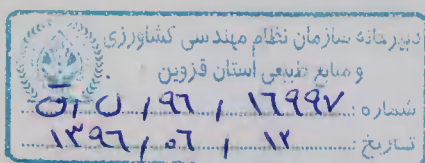 دبیرخانه سازمان نظام مهندسی کشاورزی
و منابع طبیعی استان قزوین
شماره: ۱۶۹۹۷ / ۹۶ / ن / ق
تاریخ: ۱۲ / ۰۶ / ۱۳۹۶